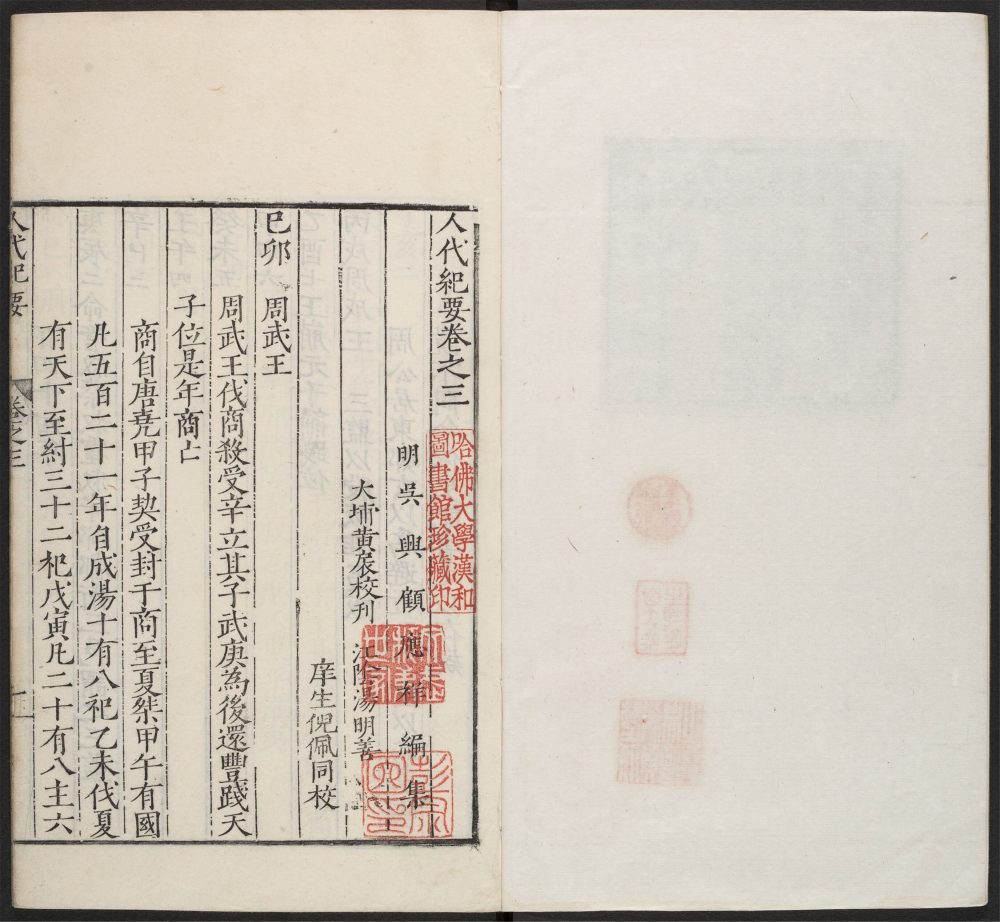 人代紀要卷之三
哈佛大學漢和
圖書館珍藏印
明吳興顧應祥編集
大埔黃扆校刊 江陰湯明善
庠生倪佩同校
己卯 周武王
周武王伐商殺受辛立其子武庚為後還豐踐天
子位是年商亡
商自唐堯甲子契受封于商至夏桀甲午有國
凡五百二十一年自成湯十有八祀乙未伐夏
有天下至紂三十二祀戊寅凡二十有八主六
人代紀要 卷之三